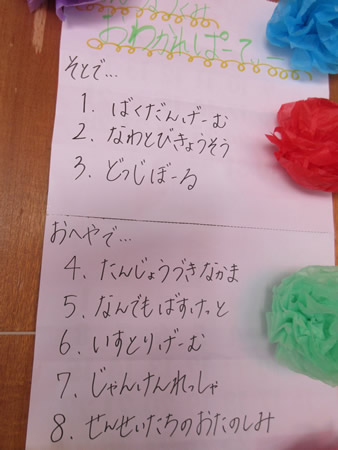 おわかれぱーてぃー
そとで…
1. ばくだんげーむ
2. なわとびきょうそう
3. どっじぼーる
おへやで…
4. たんじょうづきなかま
5. なんでもばすけっと
6. いすとりげーむ
7. じゃんけんれっしゃ
8. せんせいたちのおたのしみ